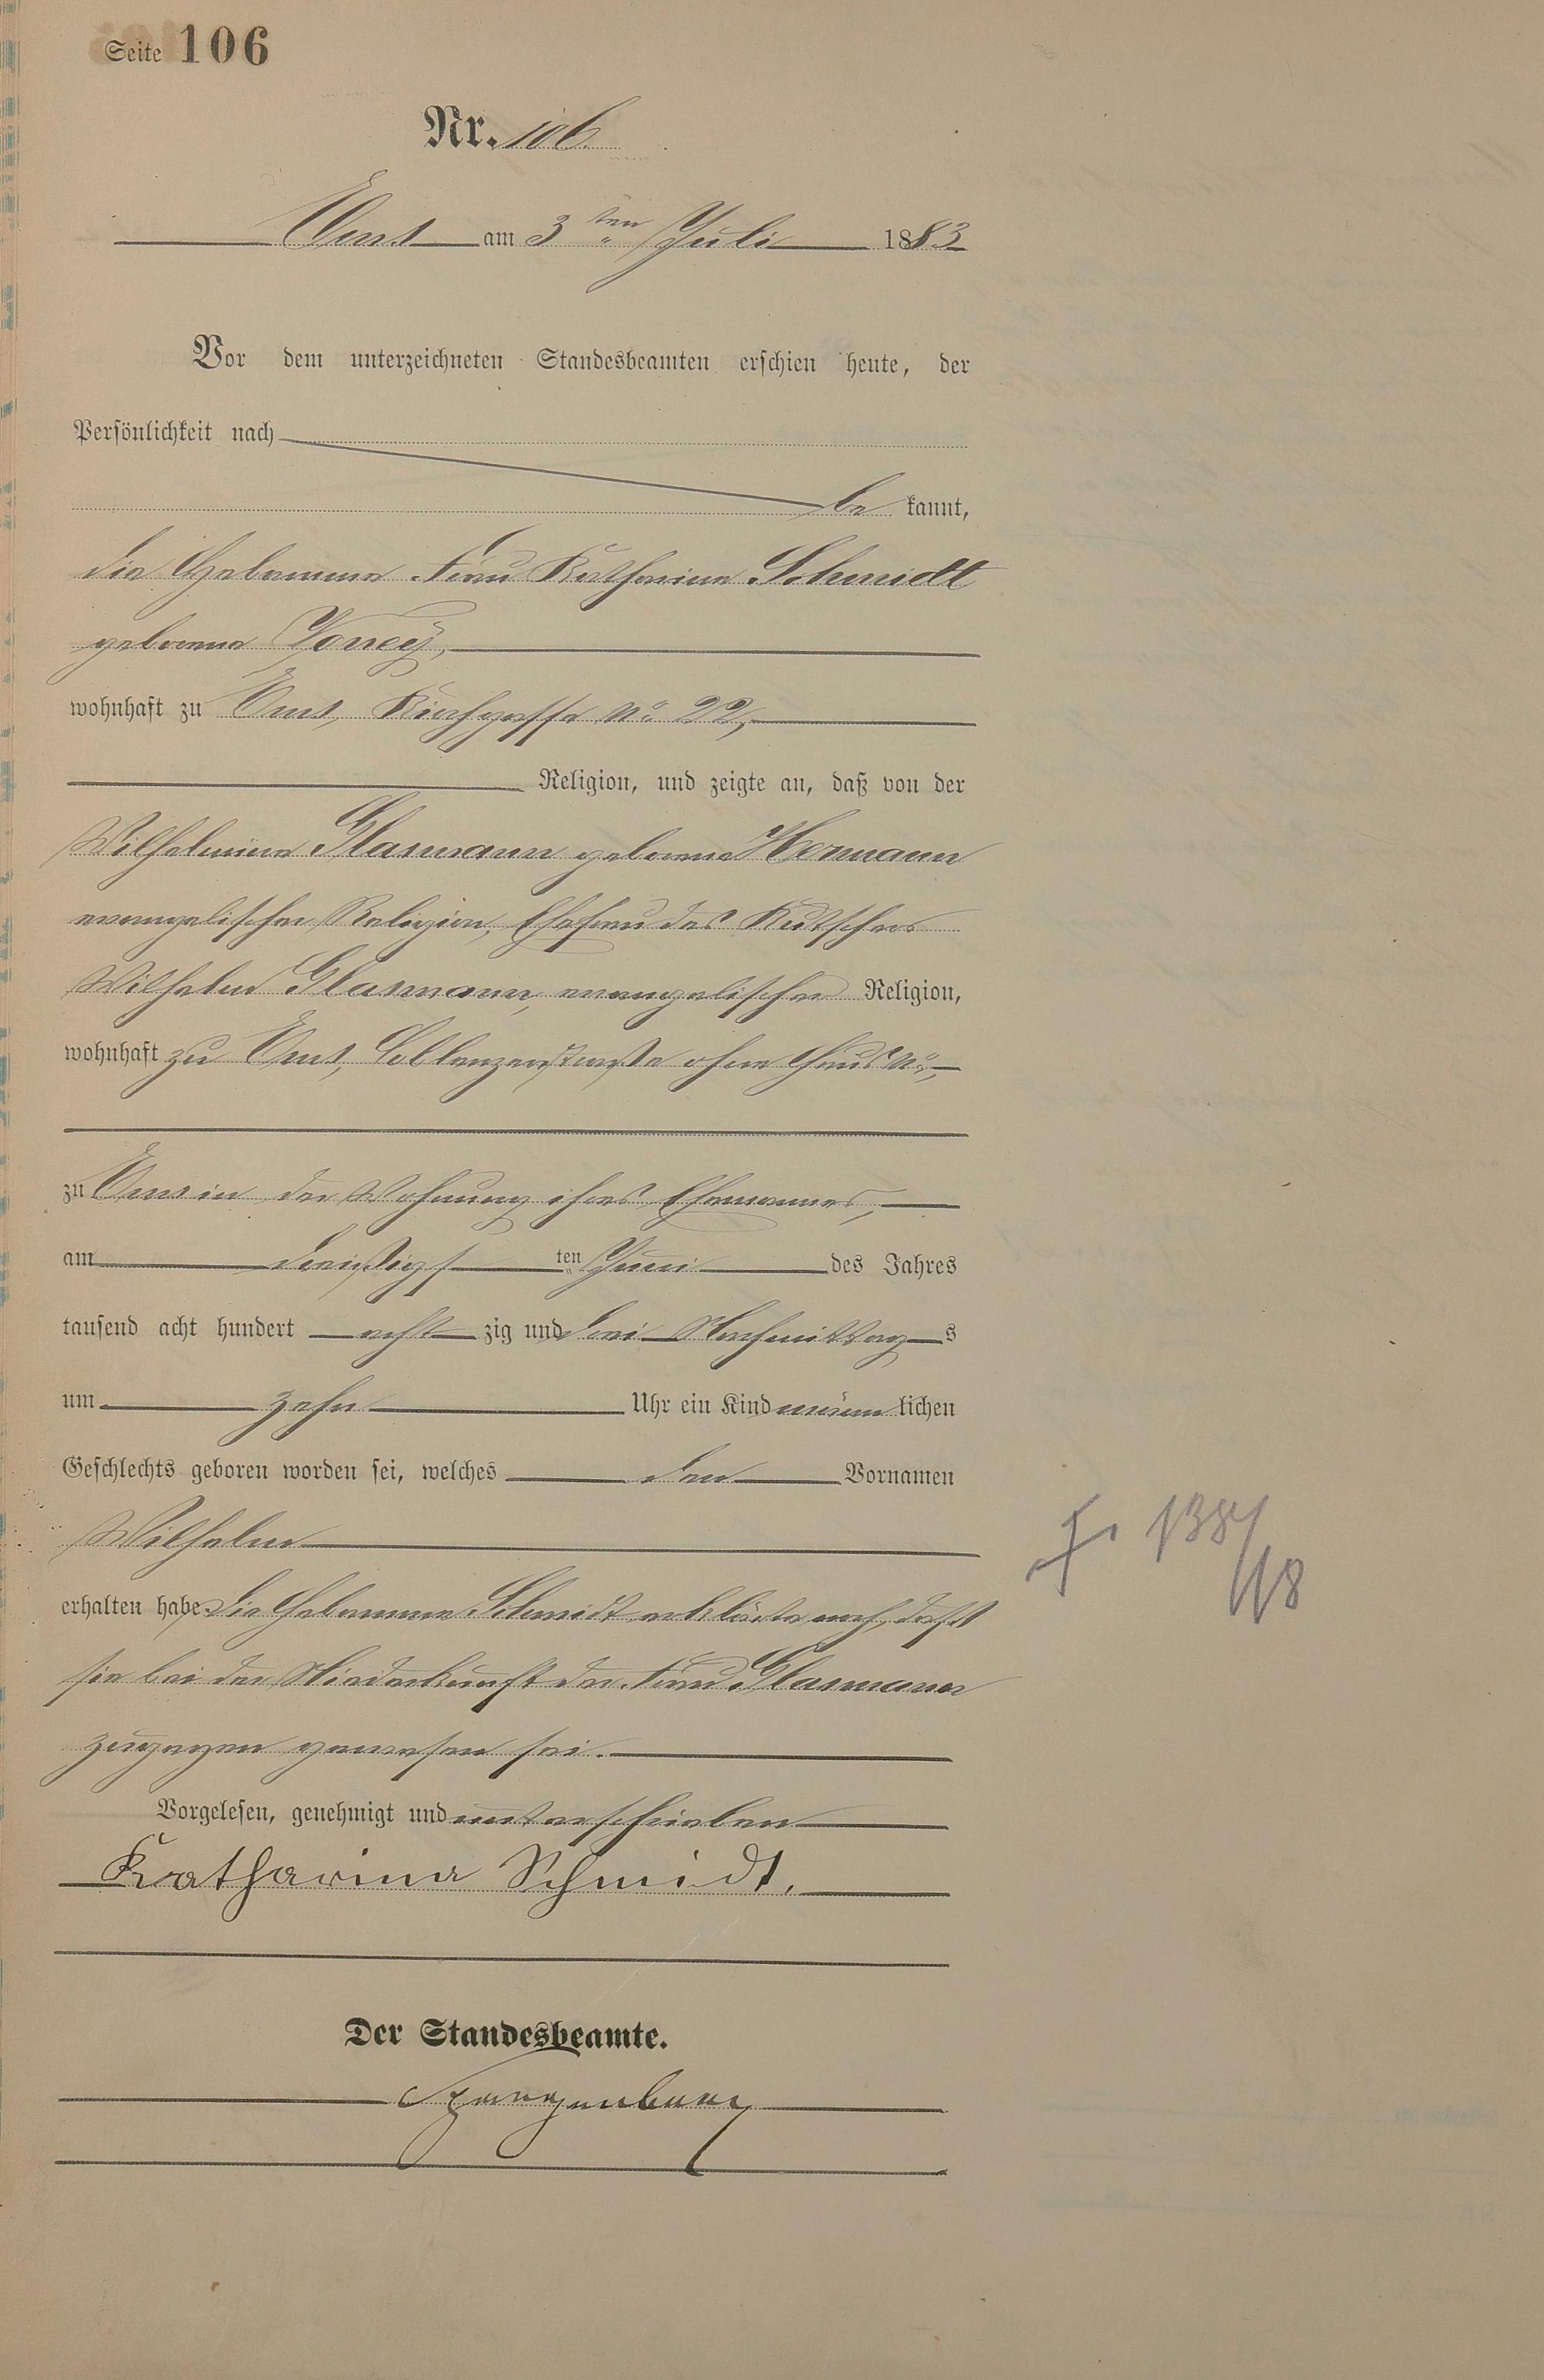 Seite 106
Nr. 106.
Ems am 3ten Juli 1883
Vor dem unterzeichneten Standesbeamten erschien heute, der
Persönlichkeit nach
be kannt,
die Hebamme Frau Katharina Schmidt
geborene
wohnhaft zu Ems, Kirchgasse No 22,
Religion, und zeigte an, daß von der
Wilhelmine Glasmann geborene Hermann
evangelischer Religion, Ehefrau des Kutschers
Wilhelm Glasmann, evangelischer Religion,
wohnhaft zu Ems, Coblenzerstraße ohne Haus No,
zu Ems in der Wohnung ihres Ehemannes,
am dreißigs ten Juni des Jahres
tausend acht hundert acht zig und drei Nachmittag s
um zehn Uhr ein Kind männ lichen
Geschlechts geboren worden sei, welches den Vornamen
Wilhelm
erhalten habe. Die Hebamme Schmidt erklärte noch, daß
sie bei der Niederkunft der Frau Glasmann
zugegen gewesen sei.
Vorgelesen, genehmigt und unterschrieben
Katharina Schmidt.
Der Standesbeamte.
Spangenberg